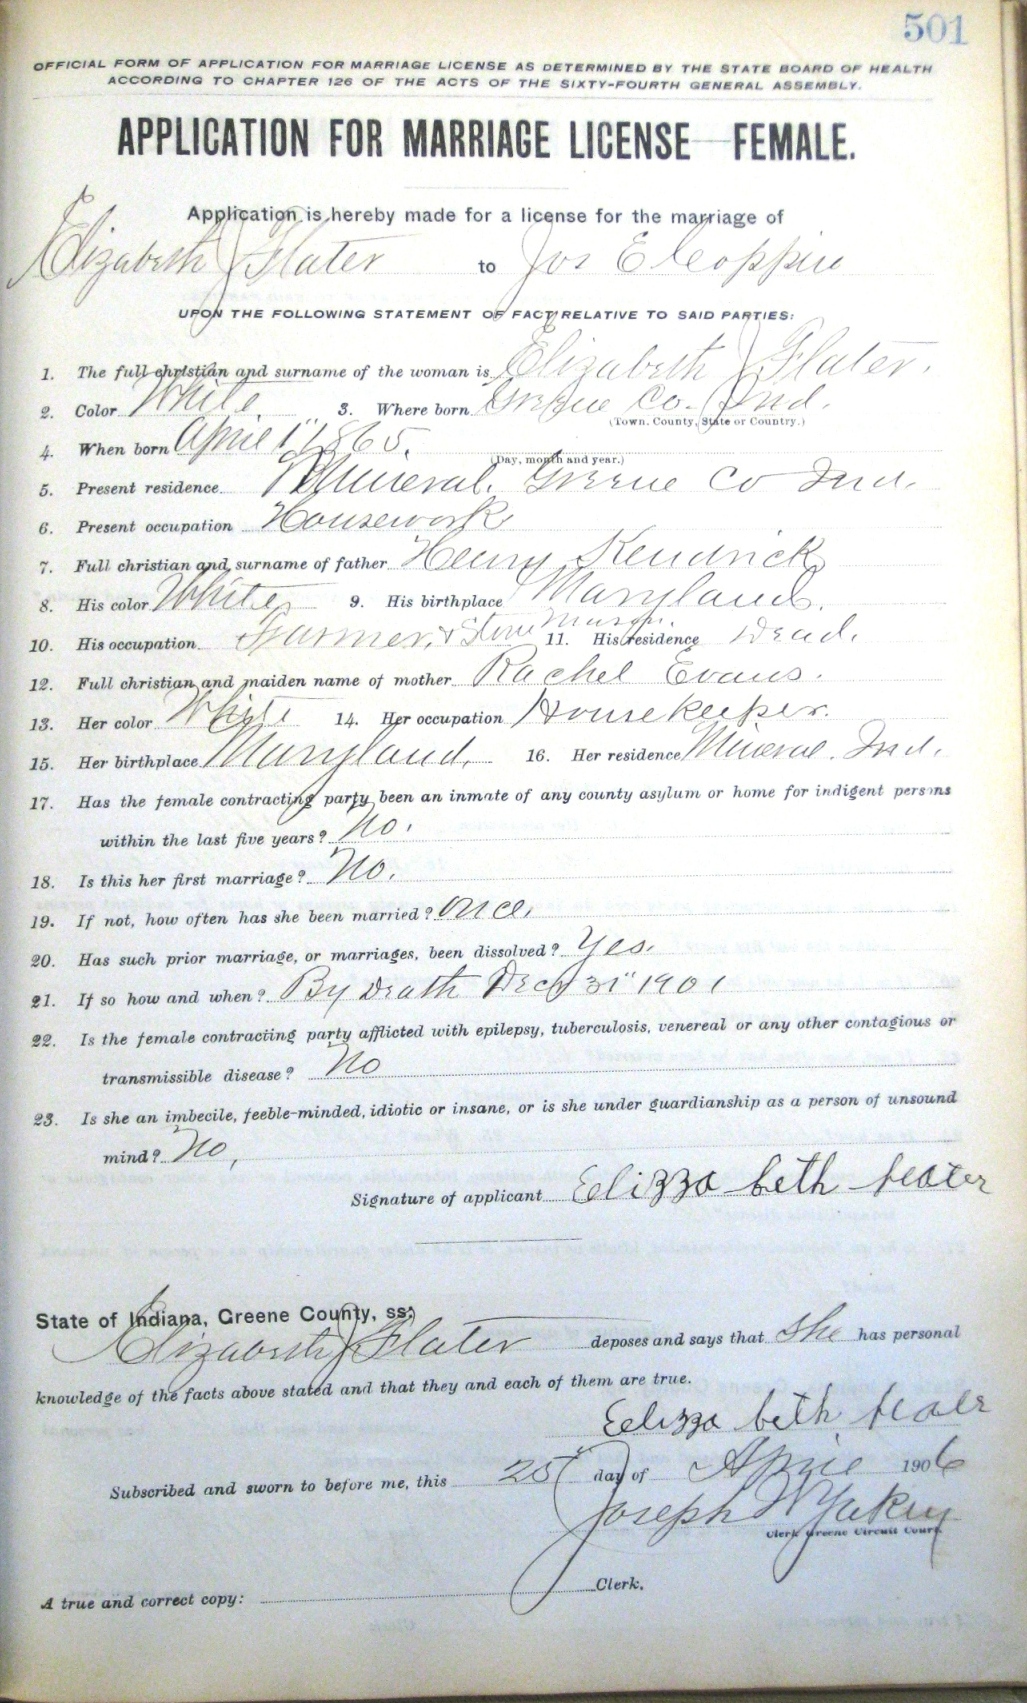 501
OFFICIAL FORM OF APPLICATION FOR MARRIAGE LICENSE AS DETERMINED BY THE STATE BOARD OF HEALTH
ACCORDING TO CHAPTER 126 OF THE ACTS OF THE SIXTY-FOURTH GENERAL ASSEMBLY.
APPLICATION FOR MARRIAGE LICENSE—FEMALE.
Application is hereby made for a license for the marriage of
Elizabeth Flater to Jos E Coppin
UPON THE FOLLOWING STATEMENT OF FACT RELATIVE TO SAID PARTIES:
1. The full christian and surname of the woman is Elizabeth Flater.
2. Color White. 3. Where born Greene Co. Ind.
(Town, County, State or Country.)
4. When born April 1" 1865.
(Day, month and year.)
5. Present residence Mineral. Greene Co Ind.
6. Present occupation Housework
7. Full christian and surname of father Henry Kendrick
8. His color White 9. His birthplace Maryland.
10. His occupation Farmer, & Stone Mason. 11. His residence Dead.
12. Full christian and maiden name of mother Rachel Evans.
13. Her color White 14. Her occupation Housekeeper.
15. Her birthplace Maryland. 16. Her residence Mineral. Ind.
17. Has the female contracting party been an inmate of any county asylum or home for indigent persons
within the last five years? No.
18. Is this her first marriage? No.
19. If not, how often has she been married? Once.
20. Has such prior marriage, or marriages, been dissolved? Yes.
21. If so how and when? By Death Dec 31" 1901
22. Is the female contracting party afflicted with epilepsy, tuberculosis, venereal or any other contagious or
transmissible disease? No
23. Is she an imbecile, feeble-minded, idiotic or insane, or is she under guardianship as a person of unsound
mind? No,
Signature of applicant Eelizza beth
State of Indiana, Greene County, ss:
Elizabeth Flater deposes and says that She has personal
knowledge of the facts above stated and that they and each of them are true.
Eelizza beth
Subscribed and sworn to before me, this 25" day of April 1906
Joseph W Yakey
Clerk Greene Circuit Court.
A true and correct copy: Clerk.